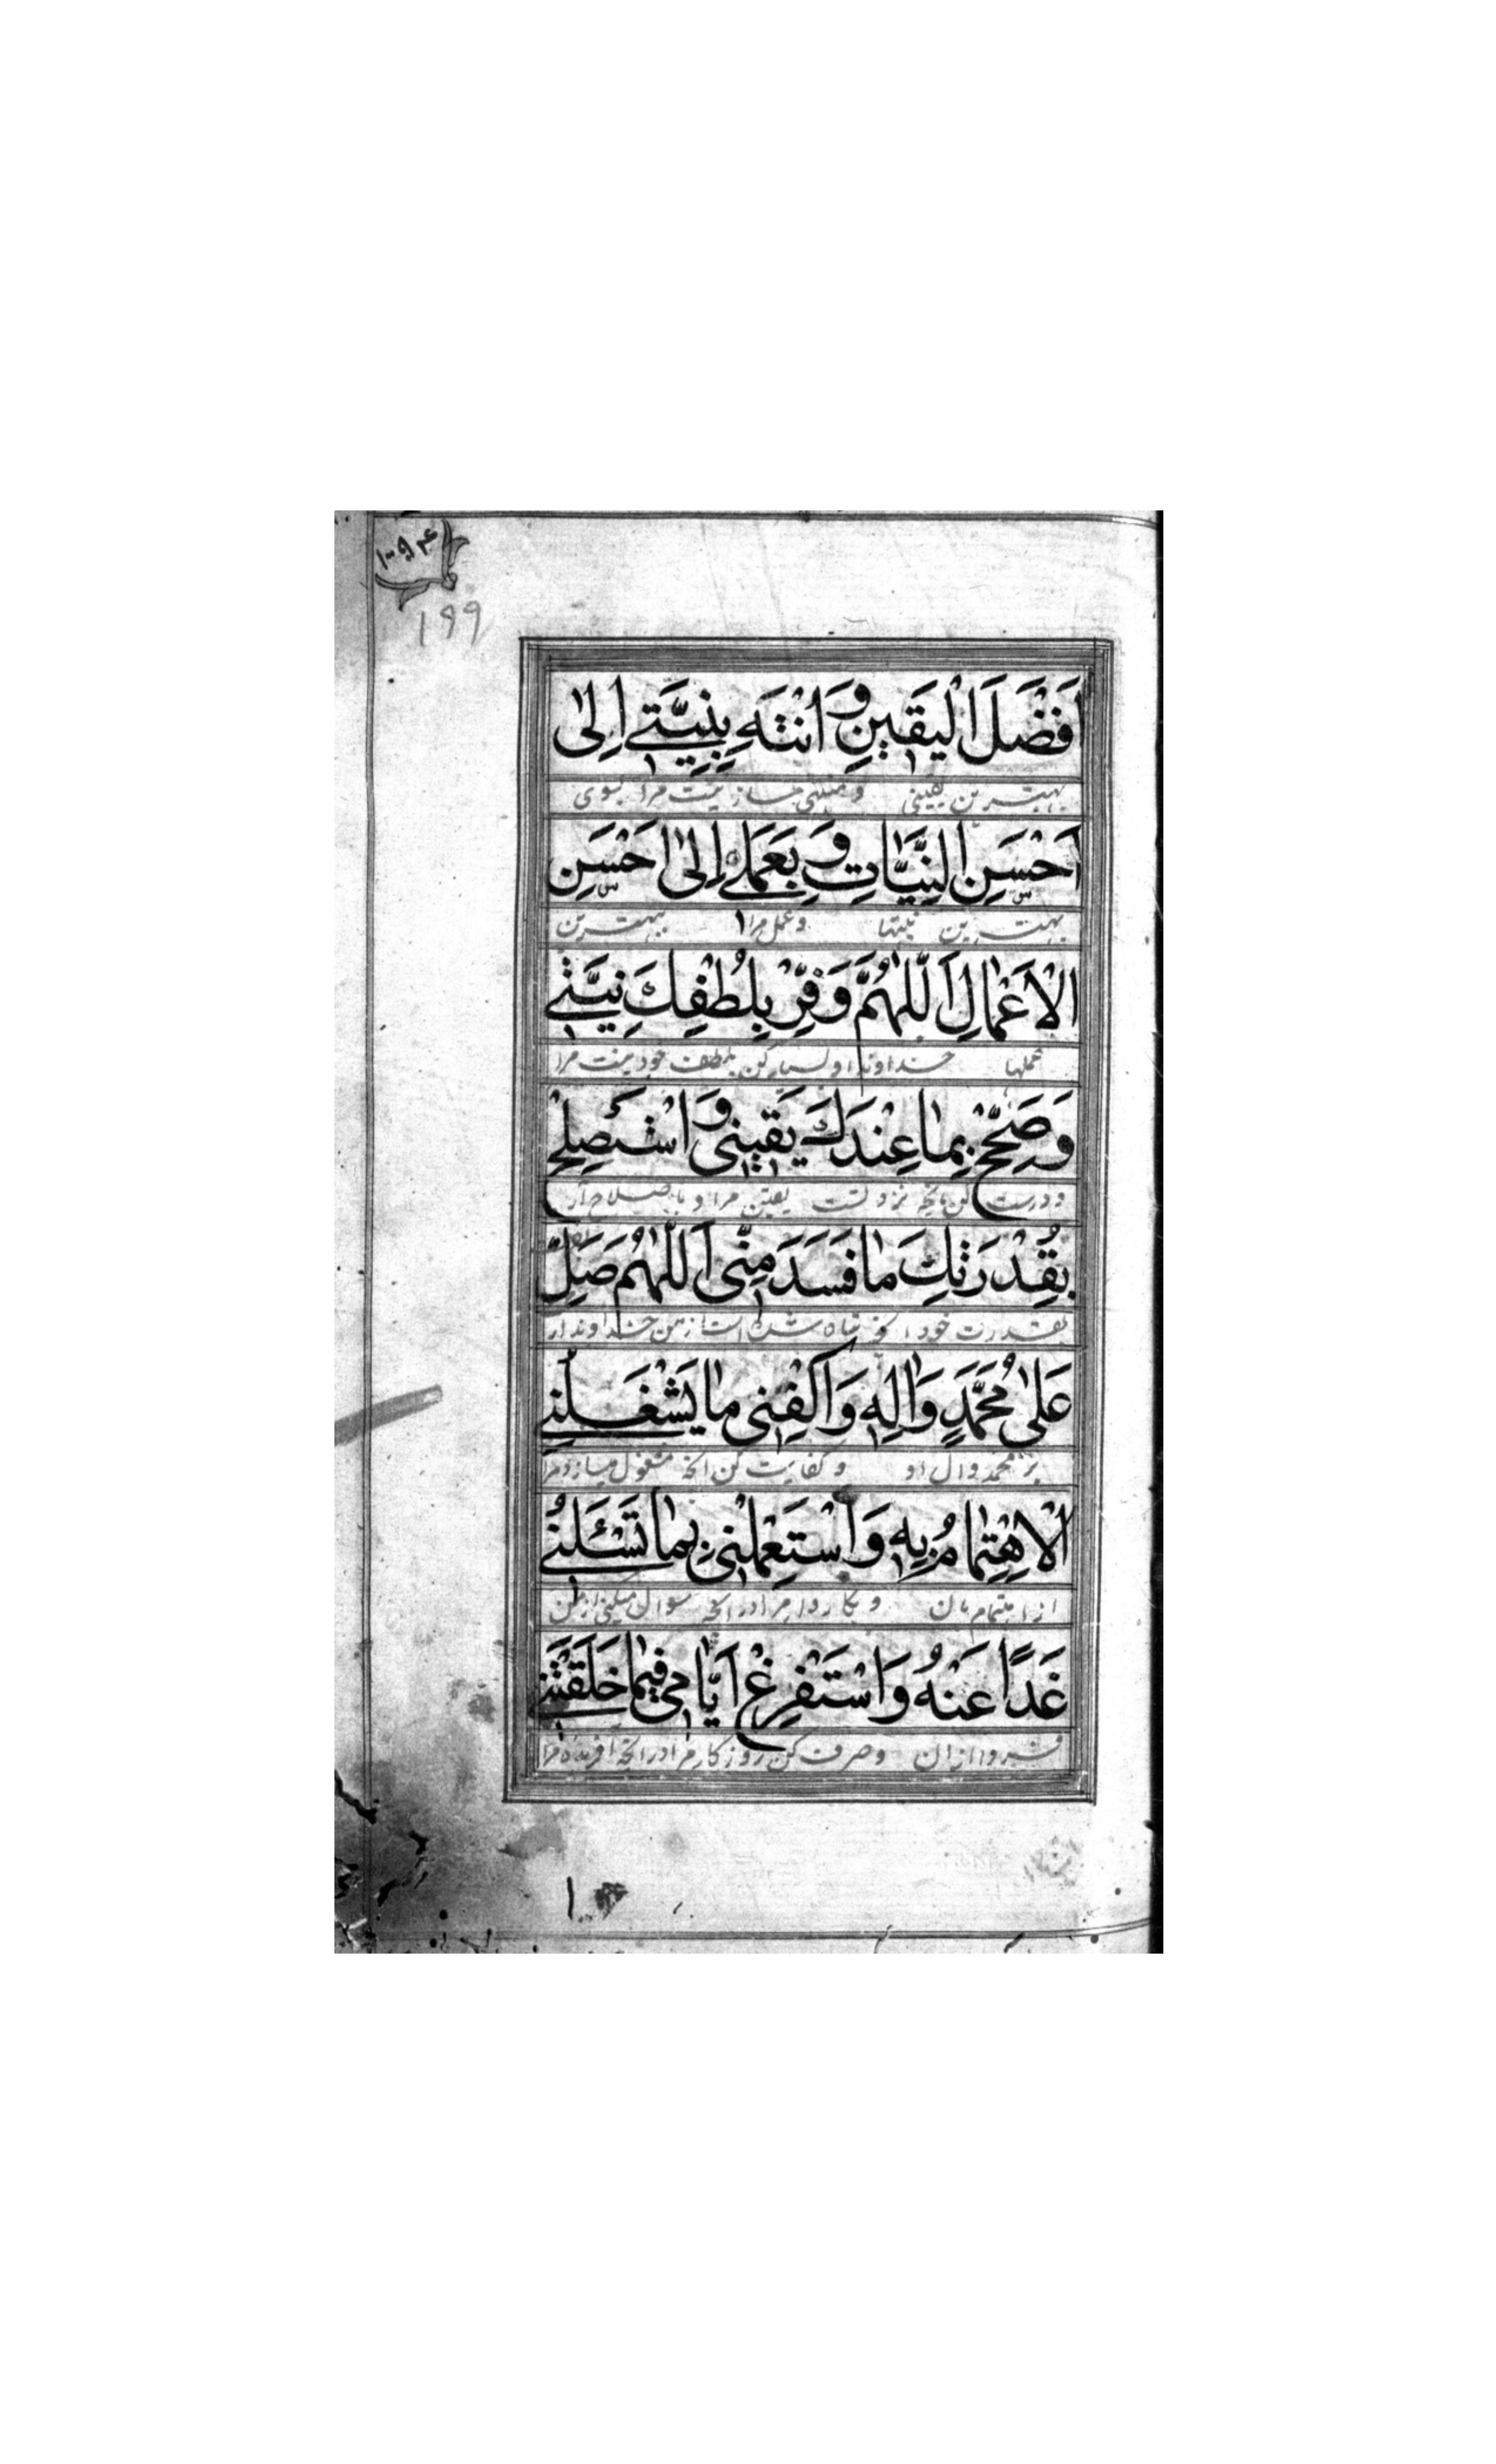 ۱۹۹
اَفْضَلَ الْیَقینِ وَ انْتَهِ بِنِیَّتی اِلیٰ
بهترین یقینی و منتهی ساز نیت مرا بسوی
اَحْسَنِ النِّیّاتِ وَ بِعَمَلی اِلیٰ اَحْسَنِ
بهترین نیتها و عمل مرا ببهترین
الْاَعْمٰالِ اَللّٰهُمَّ وَفِّرْ بِلُطْفِكَ نِیَّتی
عملها خداوندا و بسیار کن بلطف خود نیت مرا
وَ صَحِّحْ بِمٰا عِنْدَكَ یَقینی وَ اسْتَصْلِحْ
و درست کن بآنچه نزد تست یقین مرا و باصلاح آر
بِقُدْرَتِكَ مٰا فَسَدَ مِنّی اَللّٰهُمَّ صَلِّ
بقدرت خود آنچه تباه شده است از من خداوندا
عَلیٰ مُحَمَّدٍ وَ اٰلِهِ وَ اكْفِنی مٰا یَشْغَلُنی
بر محمد و ال او و کفایت کن آنچه مشغول میسازد مرا
الْاِهْتِمٰامُ بِهِ وَ اسْتَعْمِلْنی بِمٰا تَسْئَلُنی
از اهتمام بان و بکار دار مرا در آنچه سوال میکنی از من
غَدًا عَنْهُ وَ اسْتَفْرِغْ اَیّٰامی فیمٰا خَلَقْتَنی
فردا از ان و صرف کن روزکار مرا در آنچه افریده مرا